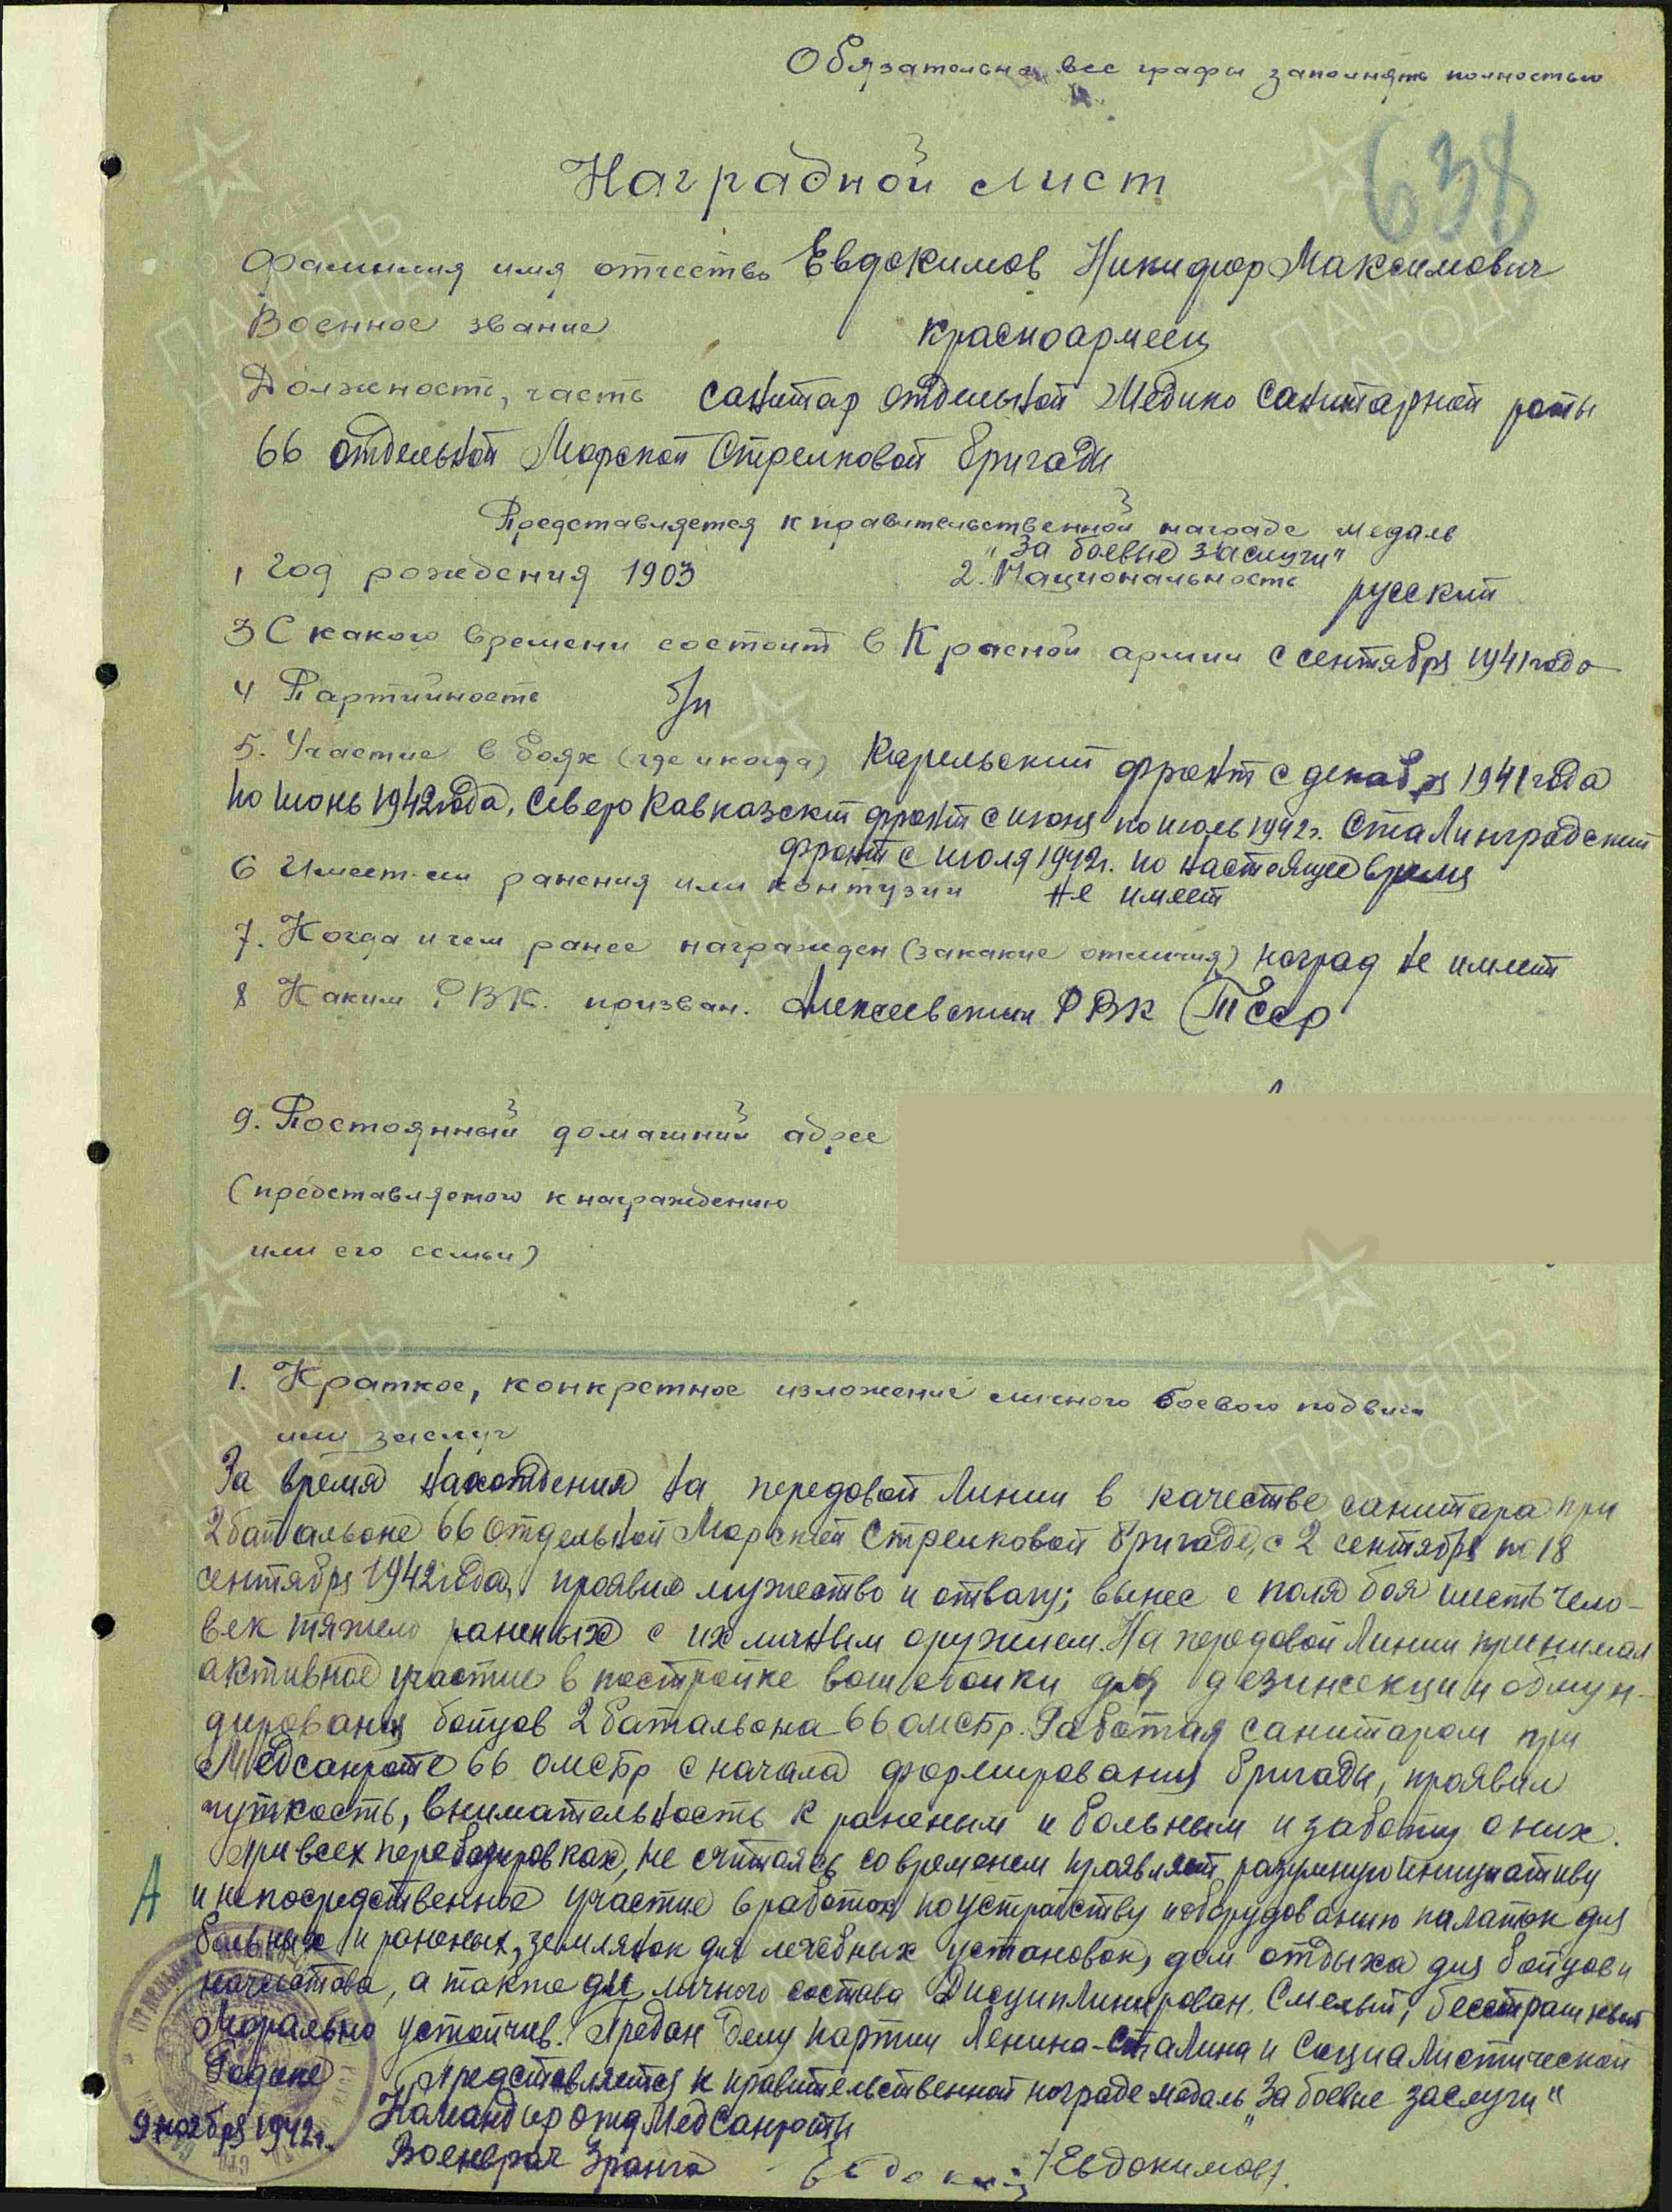 Обязательно все графы заполнять полностью
638
Наградной лист
Фамилия имя отчество Евдокимов Никифор Максимович
Военное звание красноармеец
Должность, часть санитар отдельной Медико Санитарной роты
66 отдельной Морской Стрелковой бригады
Представляется к правительственной награде медаль
"За боевые заслуги"
1 Год рождения 1903 2. Национальность русский
3 С какого времени состоит в Красной армии с сентября 1941 года
4 Партийность б/п
5. Участие в боях (где и когда) Карельский фронт с декабря 1941 года
по июнь 1942 года, Северо Кавказский фронт с июня по июль 1942 г. Сталинградский
фронт с июля 1942 г. по настоящее время
6 Имеет-ли ранения или контузии не имеет
7. Когда и чем ранее награжден (за какие отличия) наград не имеет
8 Каким РВК. призван. Алексеевским РВК ТССР
9. Постоянный домашний адрес
(представляемого к награждению
или его семьи)
1. Краткое, конкретное изложение личного боевого подвига
или заслуг
За время нахождения на передовой линии в качестве санитара при
2 батальоне 66 Отдельной Морской Стрелковой бригаде, с 2 сентября по 18
сентября 1942 года, проявил мужество и отвагу; вынес с поля боя шесть чело-
век тяжело раненых с их личным оружием. На передовой линии принимал
активное участие в постройке вошебойки для дезинсекции обмун-
дирования бойцов 2 батальона 66 омсбр. Работая санитаром при
Медсанроте 66 омсбр с начала формирования бригады, проявил
чуткость, внимательность к раненым и больным и заботу о них.
При всех перебазировках, не считаясь со временем проявляет разумную инициативу
и непосредственное участие в работах по устройству и оборудованию палаток для
больных и раненых, землянок для лечебных установок, дом отдыха для бойцов и
начсостава, а также для личного состава Дисциплинирован. Смелый, бесстрашный
Морально устойчив. Предан делу партии Ленина-Сталина и Социалистической
Родине Представляется к правительственной награде медаль "За боевые заслуги"
9 ноября 1942 г. Командир отд МедСанроты
Военврач 3 ранга /Евдокимов/
А
ПАМЯТЬ
НАРОДА